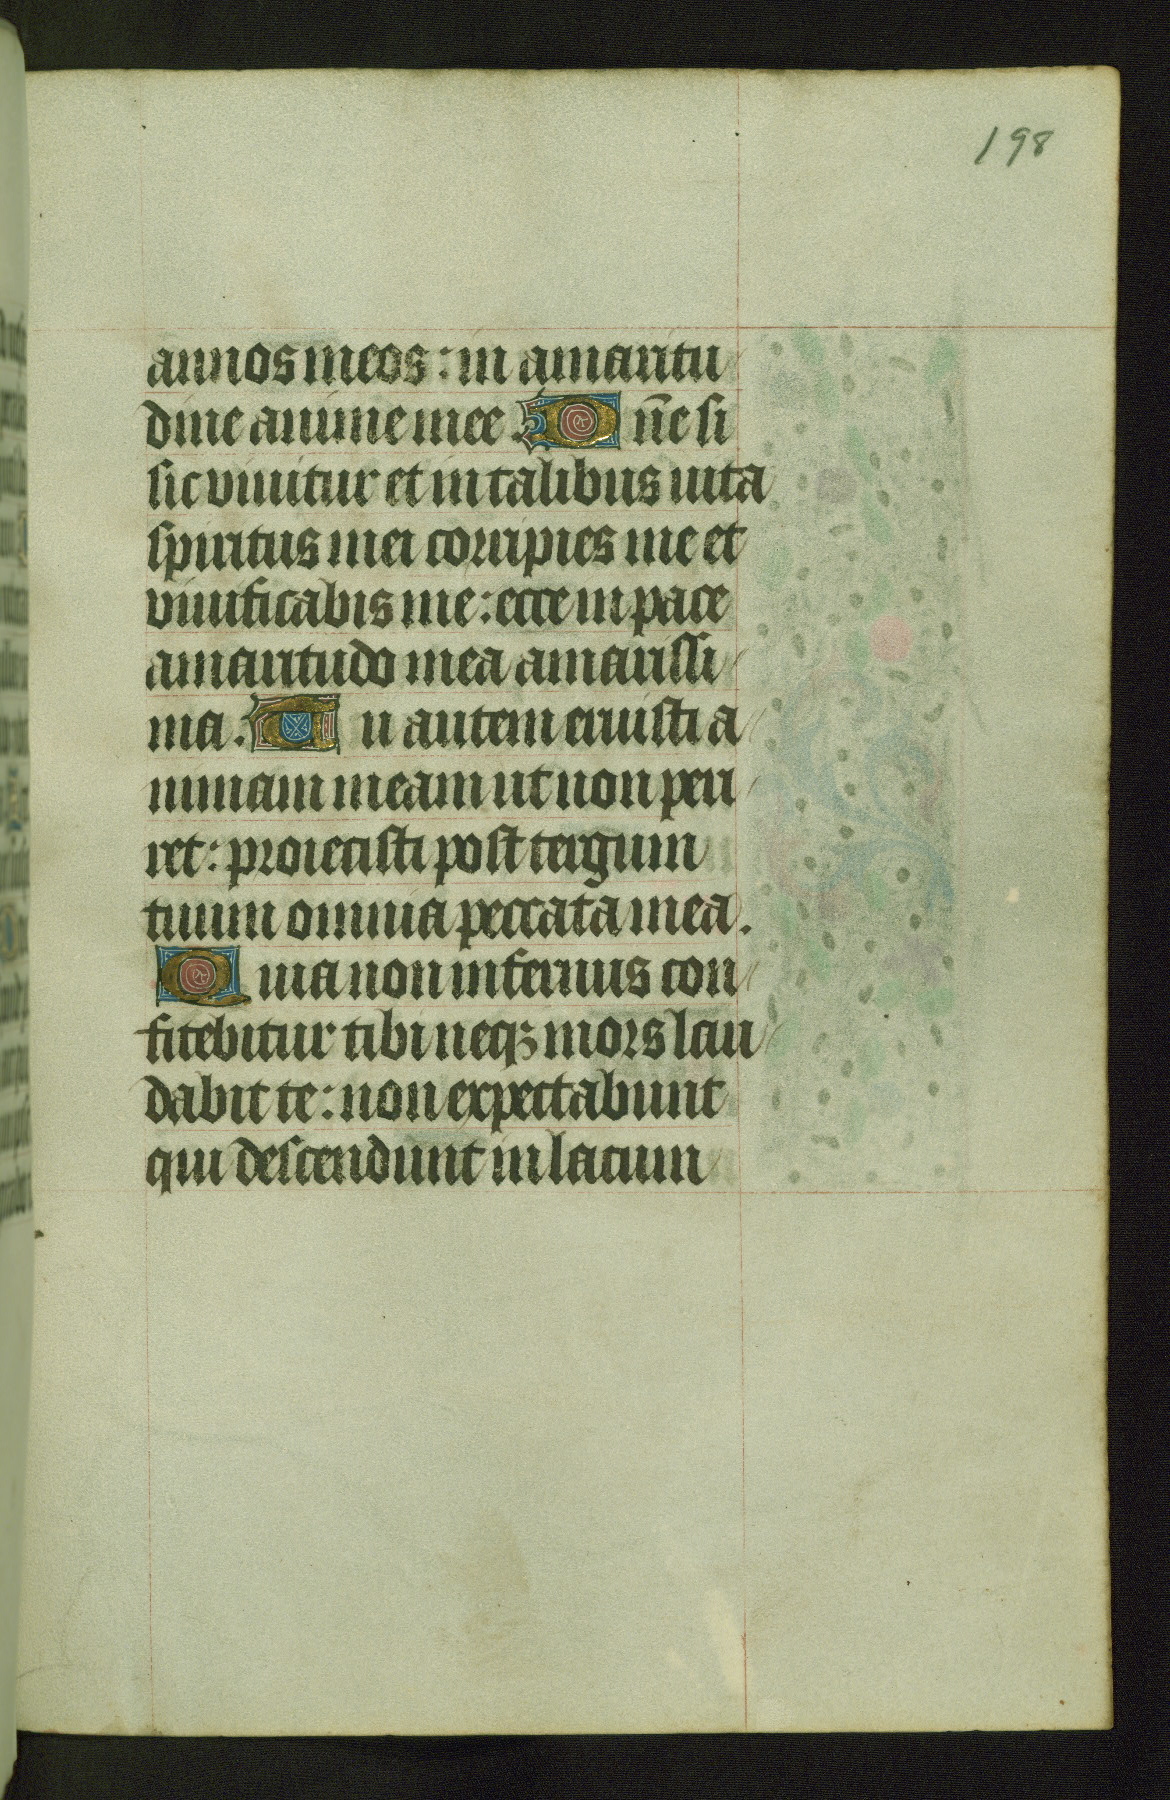 198
annos meos : in amaritu
dine anime mee . Dn̄e si
sic viuitur et in talibus uita
spiritus mei corripies me et
viuificabis me : ecce in pace
amaritudo mea amarissi
ma . Tu autem eruisti a
nimam meam ut non peri
ret : proiecisti post tergum
tuum omnia peccata mea .
Quia non infernus con
fitebitur tibi neqꝫ mors lau
dabit te : non expectabunt
qui descendunt in lacum